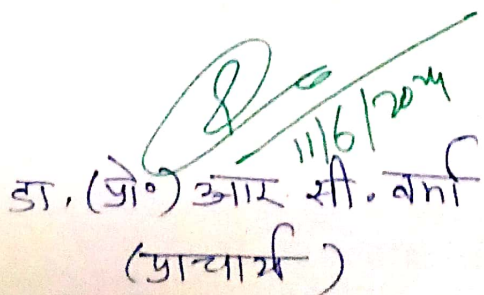 11/6/2024
डा. (प्रो०) आर सी. वर्मा
(प्राचार्य)